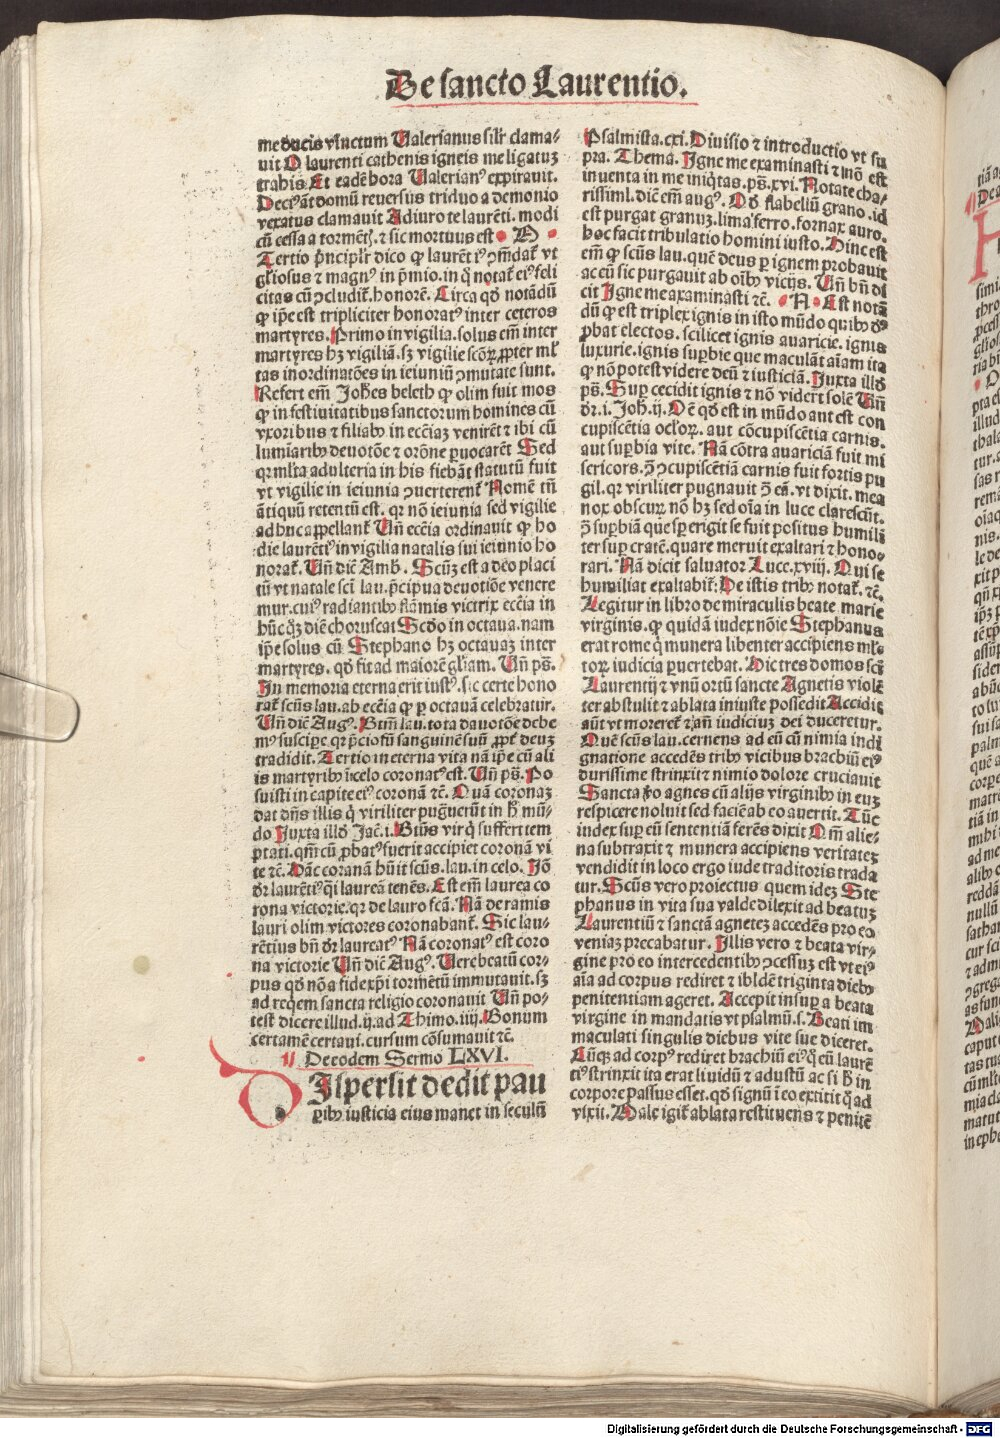 De sancto Laurentio.
me ducis vinctum Valerianus silr clama-
uit O laurenti cathenis igneis me ligatuȝ
trahis Et eadē hora Valerianꝰ expirauit.
Deciꝰ āt domū reuersus triduo a demonio
vexatus clamauit Adiuro te laurēti. modi
cū cessa a tormēt. ⁊ sic mortuus est
Tertio pͥncipalr dico ꝙ laurētiꝰ ꝯmēdat᷑ vt
gl̄iosus ⁊ magnꝰ in p̄mio. in q̇ notat᷑ eiꝰ feli
citas cū ꝯcludit᷑. honorē. Circa qd̄ notādū
ꝙ ip̄e est tripliciter honoratꝰ inter ceteros
martyres. Primo in vigilia. solus em̄ inter
martyres hȝ vigiliā. sȝ vigilie sc̄oꝝ ꝓpter ml̄
tas inordinatōes in ieiuniū ꝯmutate sunt.
Refert em̄ Joh̄es beleth ꝙ olim fuit mos
ꝙ in festiuitatibus sanctorum homines cū
vxoribus ⁊ filiabꝰ in ecc̄iaȝ venirēt ⁊ ibi cū
lumiaribꝰ deuotōe ⁊ orōne ꝑuocarēt Sed
qꝛ ml̄ta adulteria in his fiebāt statutū fuit
vt vigilie in ieiunia ꝯuerterent᷑ Nomē tn̄
ātiquū retentū est. qꝛ nō ieiunia sed vigilie
adhuc appellant᷑ Vn̄ ecc̄ia ordinauit ꝙ ho
die laurētiꝰ in vigilia natalis sui ieiunio ho
norat᷑. Vn̄ dic̄ Amb. Scūȝ est a deo placi
tū vt natale sc̄i lau. p̄cipua deuotiōe venere
mur. cuiꝰ radiantibꝰ flāmis victrix ecc̄ia in
hūc q̄ȝ diē choruscat Sc̄do in octaua. nam
ip̄e solus cū Stephano hȝ octauaȝ inter
martyres. qd̄ fit ad maiorē gl̄iam. Vn̄ ps̄.
In memoria eterna erit iustꝰ. sic certe hono
rat᷑ sc̄us lau. ab ecc̄ia ꝙ ꝑ octauā celebratur.
Vn̄ dic̄ Augꝰ. Btm̄ lau. tota deuotōe debe
mꝰ suscipe. qꝛ p̄ciosū sanguinē suū ꝓpt̄ deuȝ
tradidit. Tertio in eterna vita nā ip̄e cū ali
is martyribꝰ ī celo coronatꝰ est. Vn̄ ps̄. Po
suisti in capite eiꝰ coronā ⁊c̄. Quā coronaȝ
dat dn̄s illis q̇ viriliter pugnauerūt in h̄ mū-
do Juxta illd̄ Jac. i. Btūs vir q̇ suffert tem
ptati. qm̄ cū ꝓbatꝰ fuerit accipiet coronā vi
te ⁊c̄. Hāc coronā hūit sc̄us. lau. in celo. Jō
dr̄ laurētiꝰ q̄i laureā tenēs. Est em̄ laurea co
rona victorie. qꝛ de lauro fc̄ā. Nā de ramis
lauri olim victores coronabant᷑. Sic lau-
rētius bn̄ dr̄ laureatꝰ Nā coronatꝰ est coro
na victorie Vn̄ dic̄ Augꝰ. Vere beatū cor-
pus qd̄ nō a fide xp̄i tormētū immutauit. sȝ
ad reqem sancta religio coronauit Vn̄ po-
test dicere illud. ij. ad Thimo. iiij. Bonum
certamē certaui. cursum cōsumauit ⁊c̄.
De eodem Sermo LXVI.
DIspersit dedit pau
ꝑibꝰ iusticia eius manet in seculū
Psalmista. cxi. Diuisio ⁊ introductio vt su
pra. Thema. Igne me examinasti ⁊ nō est
inuenta in me iniq̇tas. ps̄. xvi. Notate cha-
rissimi. dic̄ em̄ augꝰ. Qd̄ flabellū grano. id
est purgat granuȝ. lima ferro. fornax auro.
hoc facit tribulatio homini iusto. Hinc est
em̄ ꝙ sc̄us lau. quē deus ꝑ ignem probauit
ac cū sic purgauit ab oībꝰ vicijs. Vn̄ bn̄ di
cit Igne me axaminasti ⁊c̄. A. Est notā
dū ꝙ est triplex ignis in isto mūdo quibꝰ dꝰ
ꝓbat electos. scilicet ignis auaricie. ignis
luxurie. ignis suꝑbie que maculāt aīam ita
ꝙ nō potest videre deū ⁊ iusticiā. Juxta illd̄
ps̄. Suꝑ cecidit ignis ⁊ nō vider̄t solē Vn̄
dr̄. i. Joh. ij. Oē qd̄ est in mūdo aut est con
cupiscētia ocl̄oꝝ. aut cōcupiscētia carnis.
aut suꝑbia vite. Nā cōtra auariciā fuit mi
sericors. ꝯ̄ ꝯcupiscētiā carnis fuit fortis pu
gil. qꝛ viriliter pugnauit ꝯ̄ eā. vt dixit. mea
nox obscurȝ nō hȝ sed oīa in luce clarescūt.
ꝯ̄ suꝑbiā que se erigit se fuit positus humili
ter suꝑ cratē. quare meruit exaltari ⁊ hono-
rari. Nā dicit saluator Luce. xviii. Qui se
humiliat exaltabit᷑. De istis tribꝰ notat᷑. ⁊c̄.
Legitur in libro de miraculis beate marie
virginis. ꝙ quidā iudex nōie Stephanus
erat rome q̇ munera libenter accipiens ml̄-
torȝ iudicia ꝑuertebat. Hic tres domos sc̄i
Laurentij ⁊ vnū ortū sancte Agnetis violē
ter abstulit ⁊ ablata iniuste possedit Accidit
aūt vt moreret᷑ ⁊ añ iudiciuȝ dei duceretur.
Quē sc̄us lau. cernens ad eū cū nimia indi
gnatione accedēs tribꝰ vicibus brachiū eiꝰ
durissime strinxit ⁊ nimio dolore cruciauit
Sancta v̊o agnes cū alijs virginibꝰ in euȝ
respicere noluit sed faciē ab eo auertit. Tūc
iudex suꝑ eū sententiā ferēs dixit Qm̄ alie-
na subtraxit ⁊ munera accipiens veritateȝ
vendidit in loco ergo iude traditoris trada
tur. Sc̄us vero proiectus quem ideȝ Ste
phanus in vita sua valde dilexit ad beatuȝ
Laurentiū ⁊ sanctā agneteȝ accedēs pro eo
veniaȝ precabatur. Illis vero ⁊ beata vir-
gine pro eo intercedentibꝰ ꝯcessuȝ est vt eiꝰ
aīa ad corpus rediret ⁊ ibidē triginta diebꝰ
penitentiam ageret. Accepit insuꝑ a beata
virgine in mandatis vt psalmū. s. Beati im
maculati singulis diebus vite sue diceret.
Cūqȝ ad corpꝰ rediret brachiū eiꝰ q̇ cū laurē
tiꝰ strinxit ita erat liuidū ⁊ adustū ac si h̄ in
corpore passus esset. qd̄ signū ī eo extitit q̇ ad
vixit. Male igit᷑ ablata restituens ⁊ penitē
Digitalisierung gefördert durch die Deutsche Forschungsgemeinschaft - DFG